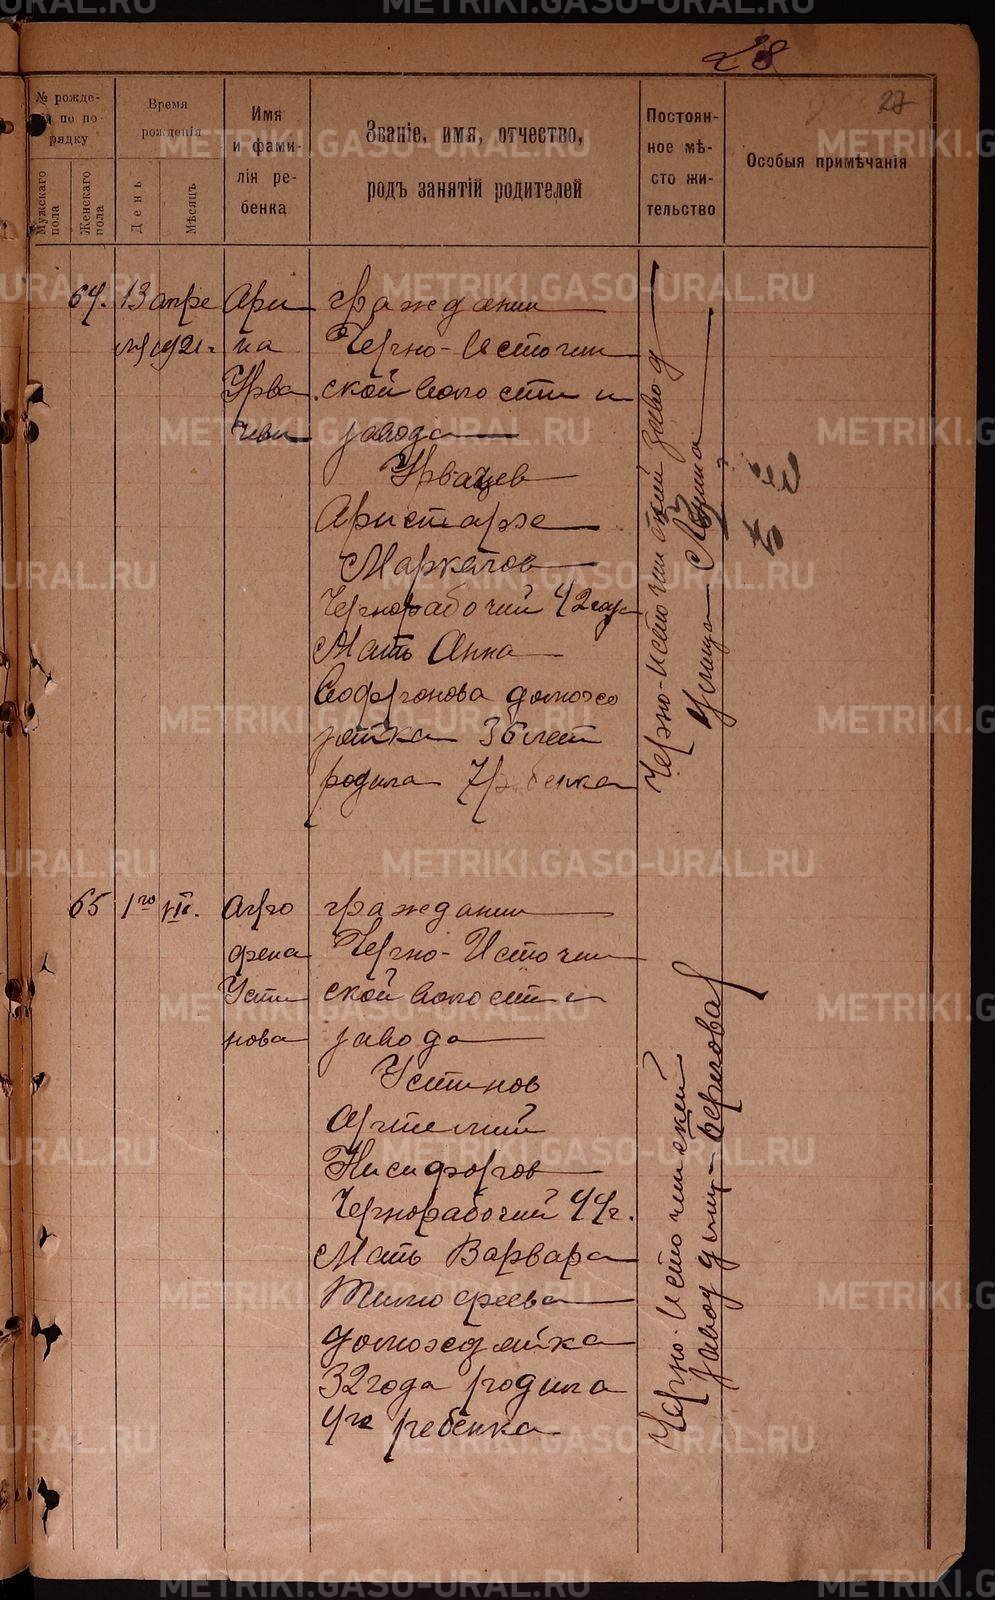 28
27
№ рожде-
й по по-
рядку
Мужскаго
пола
Женскаго
пола
Время
рожденія
День
Мѣсяцъ
Имя
и фами-
лія ре-
бенка
Званіе, имя, отчество,
родъ занятій родителей
Постоян-
ное мѣ-
сто жи-
тельство
Особыя примѣчанія
64. 13 апре
ля 1921 г.
Ари
на
Урва
граждании
Черно-Источин
ской волости и
завода
Урванцев
Аристарх
Маркелов
Чернорабочий 42 года
Мать Анна
Софронова домохо
зяйка 36 лет
родила 7 ребенка
Черно-Источинский завод
улица
65 1го VII.
Агро
фена
Усти
нова
граждании
Черно-Источин
ской волости и
завода
Устинов
Артемий
Никифоров
Чернорабочий 44 г.
Мать Варвара
Тимофеева
домохозяйка
32 года родила
4го ребенка
Черно-Источинский
завод улиц
METRIKI.GASO-URAL.RU